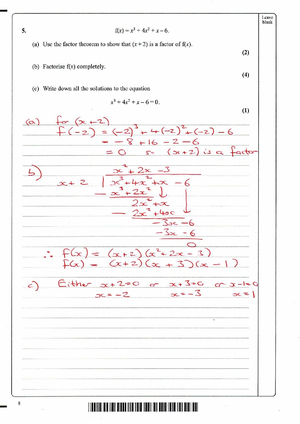 Leave
blank
5. f(x) = x³ + 4x² + x – 6.
(a) Use the factor theorem to show that (x + 2) is a factor of f(x).
(2)
(b) Factorise f(x) completely.
(4)
(c) Write down all the solutions to the equation
x³ + 4x² + x – 6 = 0.
(1)
(a) for (x+2)
f(-2) = (-2)³ + 4(-2)² + (-2) - 6
= -8 + 16 - 2 - 6
= 0 (x+2) is a factor
b) x² + 2x - 3
x+2 | x³ + 4x² + x - 6
- x³ + 2x²
2x² + x
- 2x² + 4x
- 3x - 6
- 3x - 6
0
∴ f(x) = (x+2)(x² + 2x - 3)
f(x) = (x+2)(x+3)(x-1)
c) Either x+2=0 or x+3=0 or x-1=0
x=-2 x=-3 x=1
8